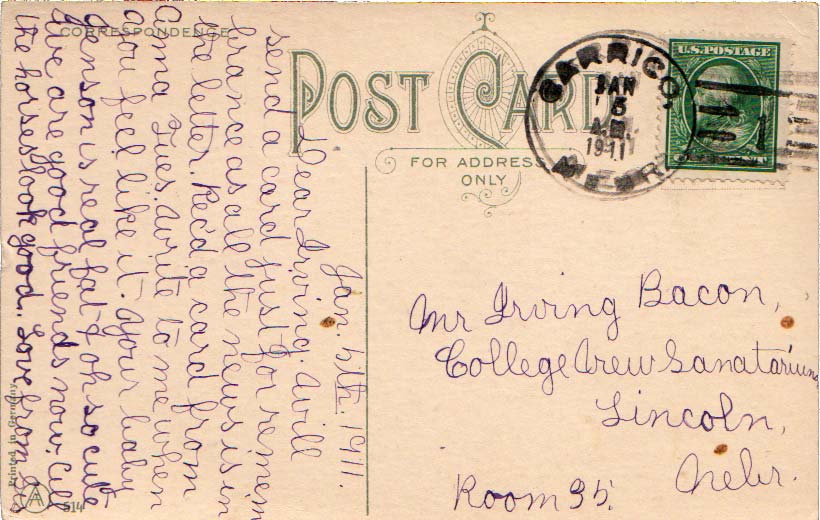 CORRESPONDENCE
POST CARD
FOR ADDRESS
ONLY
GARRICO,
JAN
5
A.M.
1911
NEBR.
U.S. POSTAGE
1
Jan. 5th. 1911.
Dear Irving. Will
send a card just for remem
brance as all the news is in
the letter. Rec'd a card from
Anna Tues. Write to me when
you feel like it. Your baby
Jenson is real fat & oh so cute
we are good friends now. All
the horses look good. Love from Sis
Mr Irving Bacon,
College View Sanatarium,
Lincoln,
Nebr.
Room 35.
Printed in Germany
514